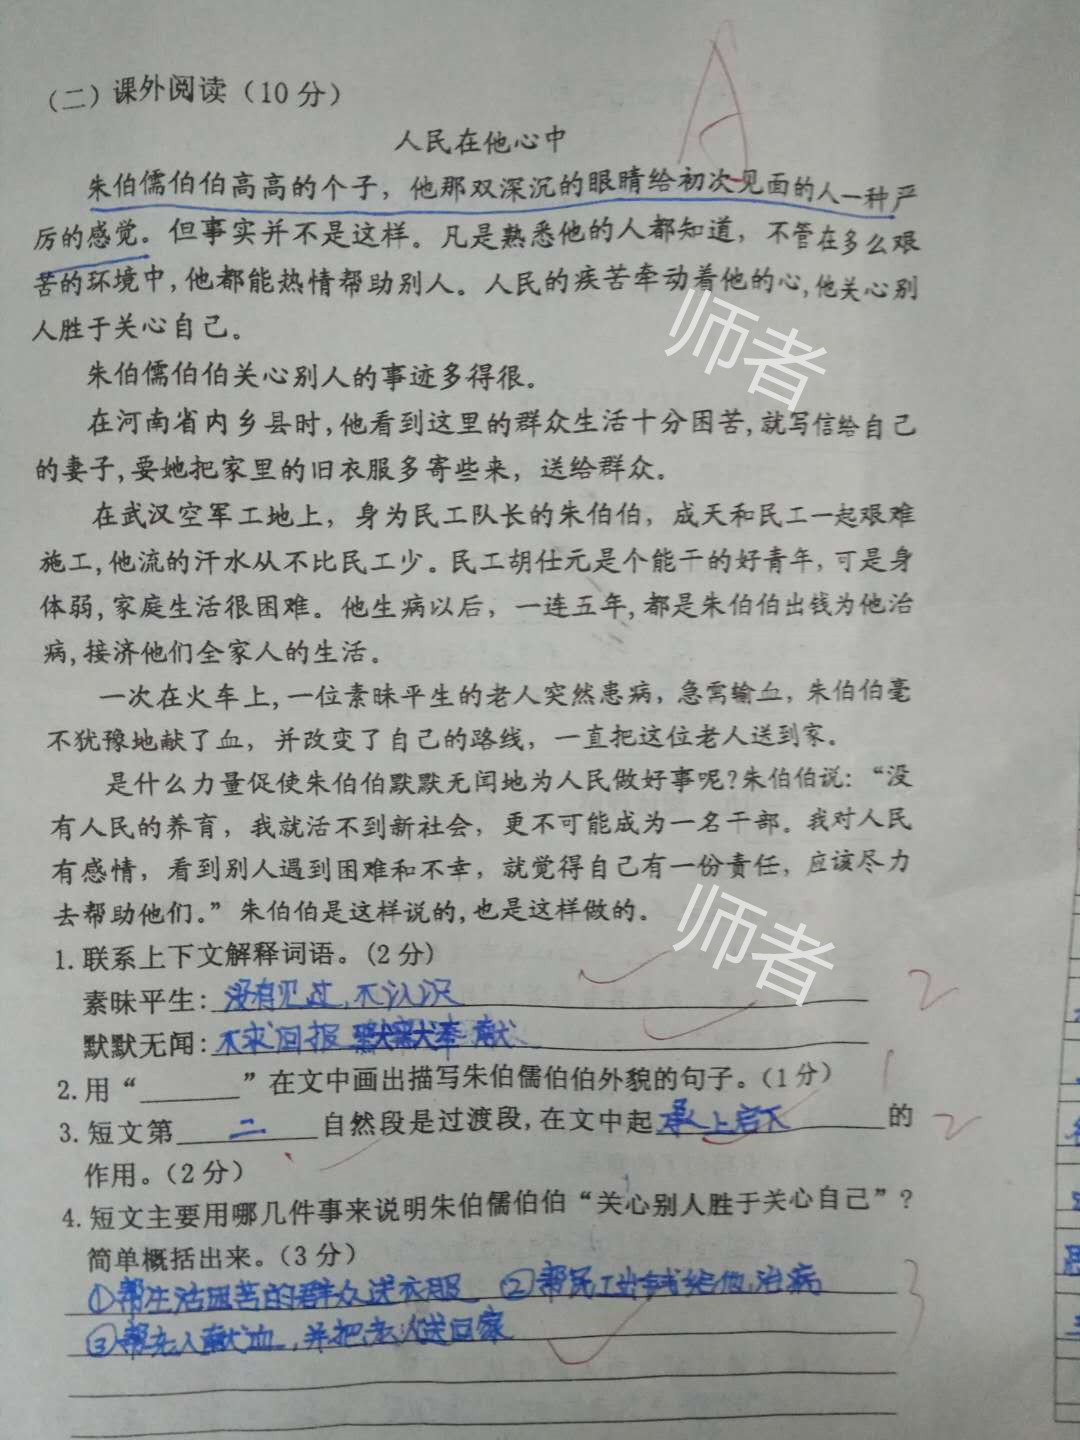 （二）课外阅读（10分）
A
人民在他心中
朱伯儒伯伯高高的个子，他那双深沉的眼睛给初次见面的人一种严
厉的感觉。但事实并不是这样。凡是熟悉他的人都知道，不管在多么艰
苦的环境中，他都能热情帮助别人。人民的疾苦牵动着他的心，他关心别
人胜于关心自己。
朱伯儒伯伯关心别人的事迹多得很。
在河南省内乡县时，他看到这里的群众生活十分困苦，就写信给自己
的妻子，要她把家里的旧衣服多寄些来，送给群众。
在武汉空军工地上，身为民工队长的朱伯伯，成天和民工一起艰难
施工，他流的汗水从不比民工少。民工胡仕元是个能干的好青年，可是身
体弱，家庭生活很困难。他生病以后，一连五年，都是朱伯伯出钱为他治
病，接济他们全家人的生活。
一次在火车上，一位素昧平生的老人突然患病，急需输血，朱伯伯毫
不犹豫地献了血，并改变了自己的路线，一直把这位老人送到家。
是什么力量促使朱伯伯默默无闻地为人民做好事呢？朱伯伯说：“没
有人民的养育，我就活不到新社会，更不可能成为一名干部。我对人民
有感情，看到别人遇到困难和不幸，就觉得自己有一份责任，应该尽力
去帮助他们。”朱伯伯是这样说的，也是这样做的。
师者
师者
1.联系上下文解释词语。（2分）
素昧平生：没有见过，不认识 2
默默无闻：不求回报 奉献
2.用“______”在文中画出描写朱伯儒伯伯外貌的句子。（1分） 1
3.短文第 二 自然段是过渡段，在文中起 承上启下 的 2
作用。（2分）
4.短文主要用哪几件事来说明朱伯儒伯伯“关心别人胜于关心自己”？
简单概括出来。（3分）
①帮生活困苦的群众送衣服 ②帮民工出钱给他治病 3
③帮老人献血，并把老人送回家